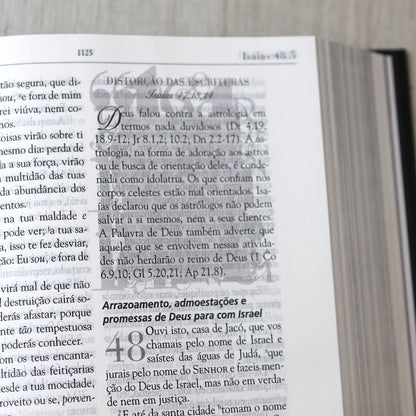 1125
Isaías 48.5
tão segura, que di-
sou, e fora de mim
rei viúva, nem co-
nos.
oisas virão sobre ti
mesmo dia: perda de
a a sua força, virão
multidão das tuas
da abundância dos
entos.
na tua maldade e
pode ver; a tua sa-
a, isso te fez desviar,
ção: Eu sou, e fora de
virá mal de que não
l destruição cairá so-
erás afastar; porque
ente tão tempestuosa
poderás conhecer.
com os teus encanta-
ultidão das feitiçarias
desde a tua mocidade,
proveito ou se, porven-
DISTORÇÃO DAS ESCRITURAS
Isaías 47.13,14
Deus falou contra a astrologia em
termos nada duvidosos (Dt 4.19;
18.9-12; Jr 8.1,2; 10.2; Dn 2.2-17). A as-
trologia, na forma de adoração aos astros
ou de busca de orientação deles, é conde-
nada como idolatria. Os que confiam nos
corpos celestes estão mal orientados. Isa-
ías declarou que os astrólogos não podem
salvar a si mesmos, nem a seus clientes.
A Palavra de Deus também adverte que
aqueles que se envolvem nessas ativida-
des não herdarão o reino de Deus (1 Co
6.9,10; Gl 5.20,21; Ap 21.8).
Arrazoamento, admoestações e
promessas de Deus para com Israel
48 Ouvi isto, casa de Jacó, que vos
chamais pelo nome de Israel e
saístes das águas de Judá, que
jurais pelo nome do SENHOR e fazeis men-
ção do Deus de Israel, mas não em verda-
de nem em justiça.
2 E até da santa cidade tomam o nome